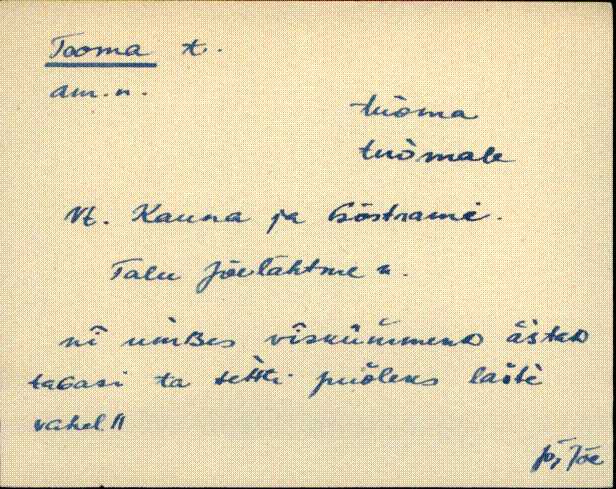 Tooma t.
am. n.
tuòma
tuòmale
Vt. Kauna ja Sòstrame.
Talu Jõelähtme n.
nî umBes vîskümmenD āstaD
taGasi ta teħti puòleks laste
vahel.//
Jõ, Jõe